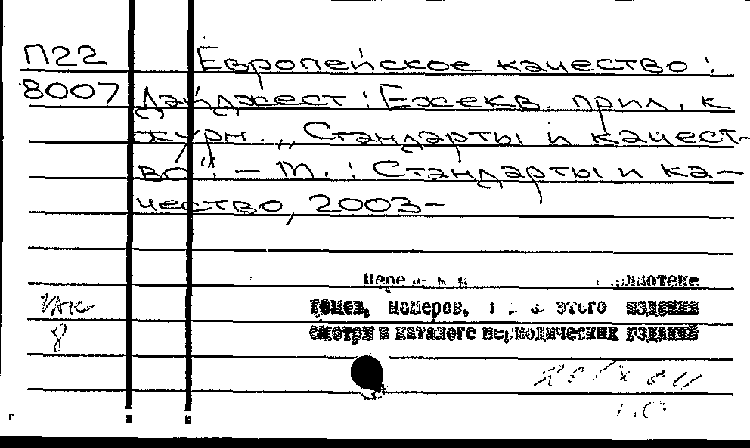 П22 Европейское качество:
8007 Дайджест: Ежекв. прил. к
журн. „Стандарты и качест-
во". – М.: Стандарты и ка-
чество, 2003-
томов, номеров, этого издания
смотри в каталоге периодических изданий